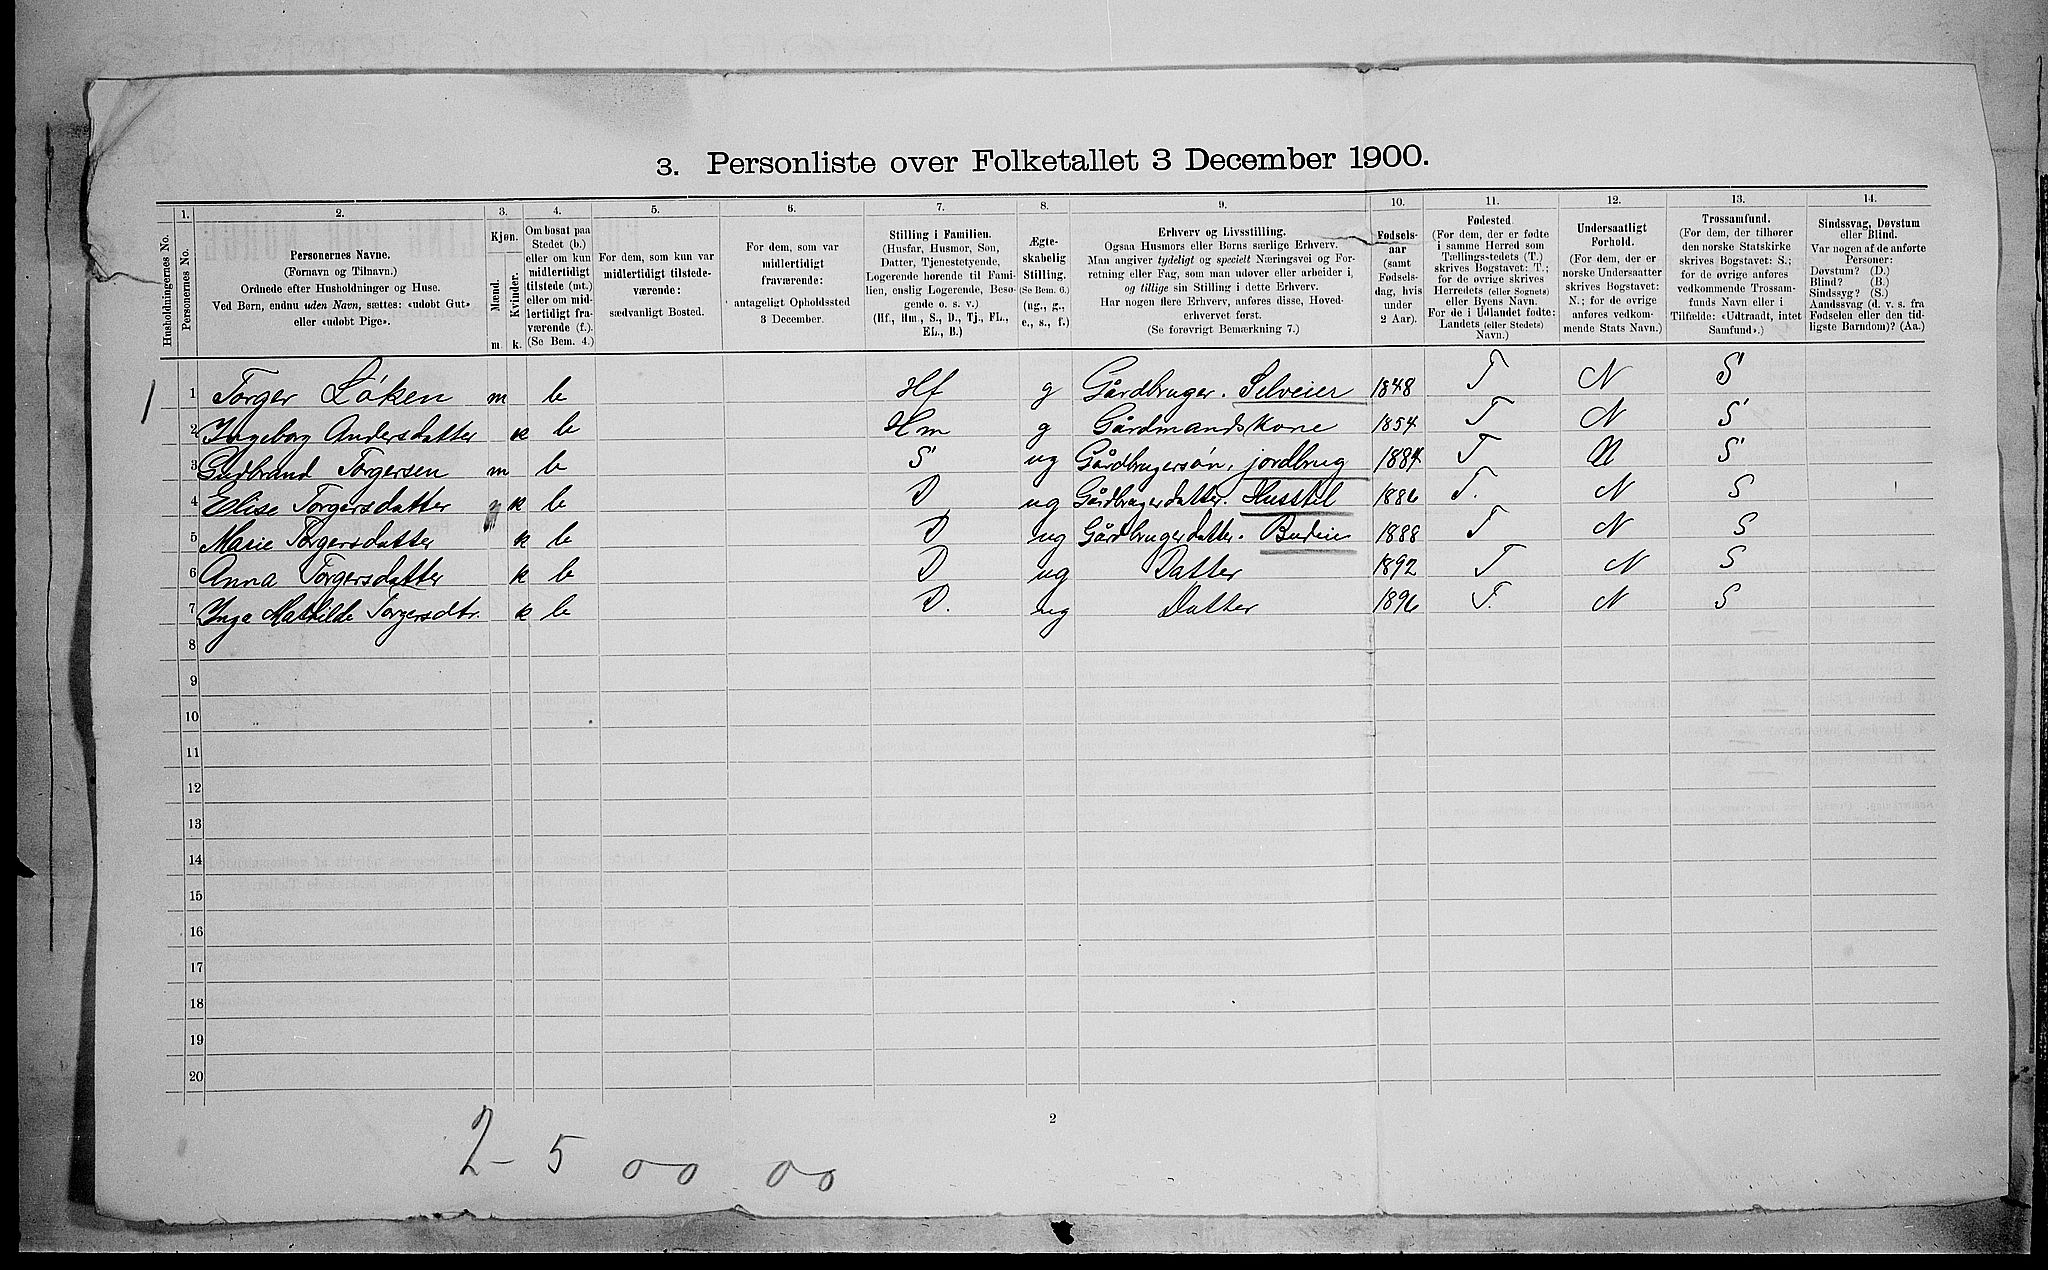 3. Personliste over Folketallet 3 December 1900.
1. 2. 3. 4. 5. 6. 7. 8. 9. 10. 11. 12. 13. 14.
Husholdningernes No.
Personernes No.
Personernes Navne.
(Fornavn og Tilnavn.)
Ordnede efter Husholdninger og Huse.
Ved Børn, endnu uden Navn, sættes: «udøbt Gut»
eller «udøbt Pige».
Kjøn.
Mænd.
Kvinder.
m. k.
Om bosat paa
Stedet (b.)
eller om kun
midlertidigt
tilstede (mt.)
eller om mid-
lertidigt fra-
værende (f.).
(Se Bem. 4.)
For dem, som kun var
midlertidigt tilstede-
værende:
sædvanligt Bosted.
For dem, som var
midlertidigt
fraværende:
antageligt Opholdssted
3 December.
Stilling i Familien.
(Husfar, Husmor, Søn,
Datter, Tjenestetyende,
Logerende hørende til Fami-
lien, enslig Logerende, Besø-
gende o. s. v.)
(Hf., Hm., S., D., Tj., FL.,
EL., B.)
Ægte-
skabelig
Stilling.
(Se Bem. 6.)
(ug., g.,
e., s., f.)
Erhverv og Livsstilling.
Ogsaa Husmors eller Børns særlige Erhverv.
Man angiver tydeligt og specielt Næringsvei og For-
retning eller Fag, som man udøver eller arbeider i,
og tillige sin Stilling i dette Erhverv.
Har nogen flere Erhverv, anføres disse, Hoved-
erhvervet først.
(Se forøvrigt Bemærkning 7.)
Fødsels-
aar
(samt
Fødsels-
dag, hvis
under
2 Aar).
Fødested.
(For dem, der er fødte
i samme Herred som
Tællings-stedets (T.)
skrives Bogstavet: T.;
for de øvrige skrives
Herredets (eller Sognets)
eller Byens Navn.
For de i Udlandet fødte:
Landets (eller Stedets)
Navn.)
Undersaatligt
Forhold.
(For dem, der er
norske Undersaatter
skrives Bogstavet:
N.; for de øvrige
anføres vedkom-
mende Stats Navn.)
Trossamfund.
(For dem, der tilhører
den norske Statskirke
skrives Bogstavet: S.;
for de øvrige anføres
vedkommende Trossam-
funds Navn eller i
Tilfælde: «Udtraadt, intet
Samfund».)
Sindssvag, Døvstum
eller Blind.
Var nogen af de anførte
Personer:
Døvstum? (D.)
Blind? (B.)
Sindssyg? (S.)
Aandssvag (d. v. s. fra
Fødselen eller den tid-
ligste Barndom)? (Aa.)
1 1 Torger Löken m b Hf g Gårdbruger. Selveier 1848 T N S
2 Ingeborg Andersdatter k b Hm g Gårdmandskone 1854 T N S
3 Gudbrand Torgersen m b S ug Gårdbrugersøn, jordbrug 1884 T N S
4 Elise Torgersdatter k b D ug Gårdbrugerdatter. Husstel 1886 T. N S
5 Marie Torgersdatter k b D ug Gårdbrugerdatter. Budeie 1888 T N S
6 Anna Torgersdatter k b D ug Datter 1892 T N S
7 Inga Mathilde Torgersdtr. k b D. ug Datter 1896 T. N S
8
9
10
11
12
13
14
15
16
17
18
19
20
2
2 - 5 00 00